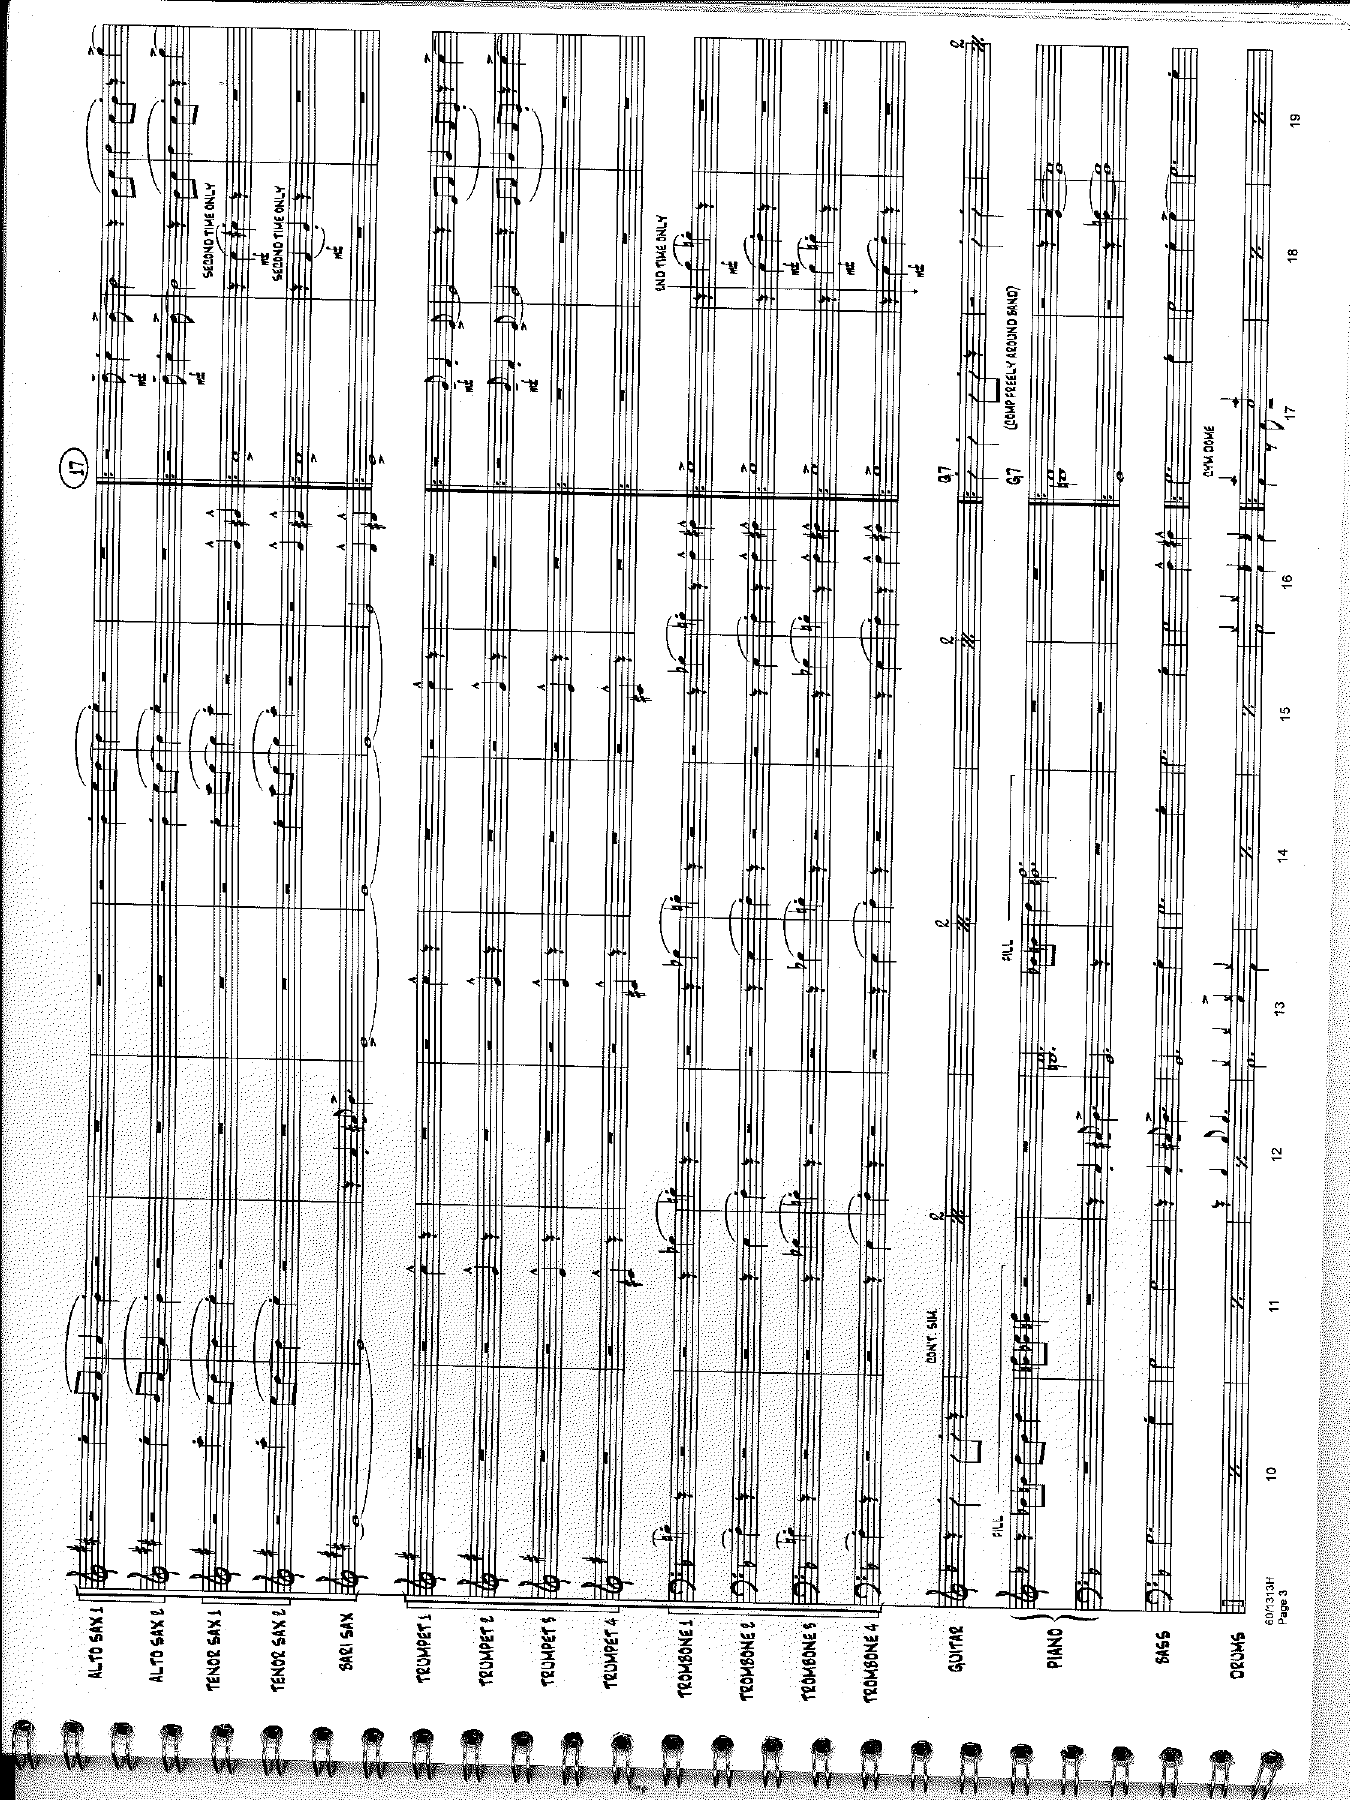 17
ALTO SAX 1
ALTO SAX 2
SECOND TIME ONLY
TENOR SAX 1
SECOND TIME ONLY
TENOR SAX 2
BARI SAX
TRUMPET 1
TRUMPET 2
TRUMPET 3
TRUMPET 4
2ND TIME ONLY
TROMBONE 1
TROMBONE 2
TROMBONE 3
TROMBONE 4
CON'T. SIM.
2
2
2
G7
2
GUITAR
FILL
FILL
G7
(COMP FREELY AROUND BAND)
PIANO
BASS
CYM DOME
DRUMS
60/1313H
Page 3
10
11
12
13
14
15
16
17
18
19